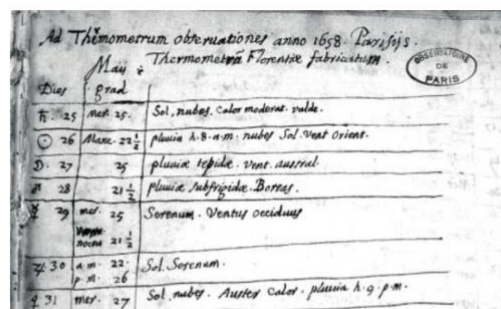 Ad Thermometrum observationes anno 1658. Parisijs.
Thermometrū Florentiæ fabricatum.
OBSERVATOIRE
DE
PARIS
Maij
Dies grad
♄. 25 mer. 25. Sol, nubes. Calor moderat. valde.
☉ 26 Mane. 22 1/2 pluuia h. 8. a.m. nubes Sol. Vent orient.
☽. 27 25 pluuiæ tepidæ. vent. austral.
♂ 28 21 1/2 pluuiæ subfrigidæ. Boreas.
☿ 29 mer. 25 Serenum. Ventus occiduus
noctu 21 1/2
♃ 30 a.m. 22. Sol. Serenum.
p.m. 26
♀ 31 mer. 27 Sol, nubes. Auster calor. pluuia h. 9. p.m.